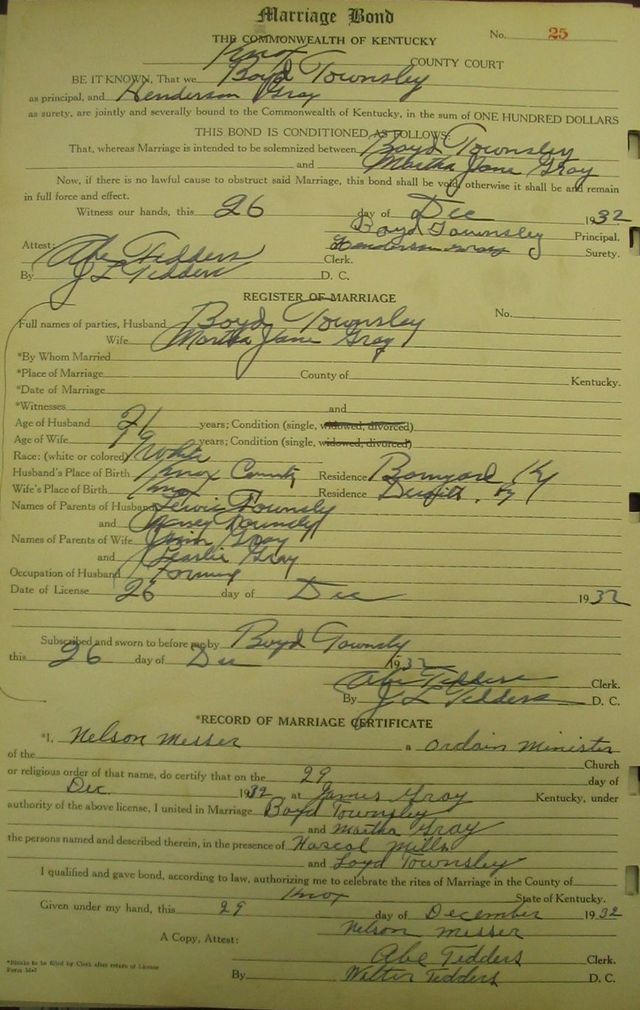 Marriage Bond
THE COMMONWEALTH OF KENTUCKY
No. 25
Knox COUNTY COURT
BE IT KNOWN, That we Boyd Townsley
as principal, and Henderson Gray
as surety, are jointly and severally bound to the Commonwealth of Kentucky, in the sum of ONE HUNDRED DOLLARS
THIS BOND IS CONDITIONED AS FOLLOWS:
That, whereas Marriage is intended to be solemnized between Boyd Townsley
and Martha Jane Gray
Now, if there is no lawful cause to obstruct said Marriage, this bond shall be void, otherwise it shall be and remain
in full force and effect.
Witness our hands, this 26 day of Dec 1932
Boyd Townsley Principal.
Attest: Henderson Gray Surety.
Abe Tedders Clerk.
By J L Tedders D. C.
REGISTER OF MARRIAGE
Full names of parties, Husband Boyd Townsley No.
Wife Martha Jane Gray
*By Whom Married
*Place of Marriage County of Kentucky.
*Date of Marriage
*Witnesses and
Age of Husband 21 years; Condition (single, widowed, divorced)
Age of Wife 19 years; Condition (single, widowed, divorced)
Race: (white or colored) White
Husband's Place of Birth Knox County Residence Ky
Wife's Place of Birth Knox Residence Dewitt, Ky
Names of Parents of Husband Lewis Townsly
and Townsley
Names of Parents of Wife Gray
and Gray
Occupation of Husband Farming
Date of License 26 day of Dec 1932
Subscribed and sworn to before me by Boyd Townsly
this 26 day of Dec 1932
Abe Tedders Clerk.
By J L Tedders D. C.
*RECORD OF MARRIAGE CERTIFICATE
*I, Nelson Messer a ordain minister
of the Church
or religious order of that name, do certify that on the 29 day of
Dec. 1932 at James Gray Kentucky, under
authority of the above license, I united in Marriage Boyd Townsley
and Martha Gray
the persons named and described therein, in the presence of Hascal Mills
and Loyd Townsley
I qualified and gave bond, according to law, authorizing me to celebrate the rites of Marriage in the County of
Knox State of Kentucky.
Given under my hand, this 29 day of December 1932
Nelson Messer
A Copy, Attest: Abe Tedders Clerk.
*Blanks to be filled by Clerk after return of License
By Walter Tedders D. C.